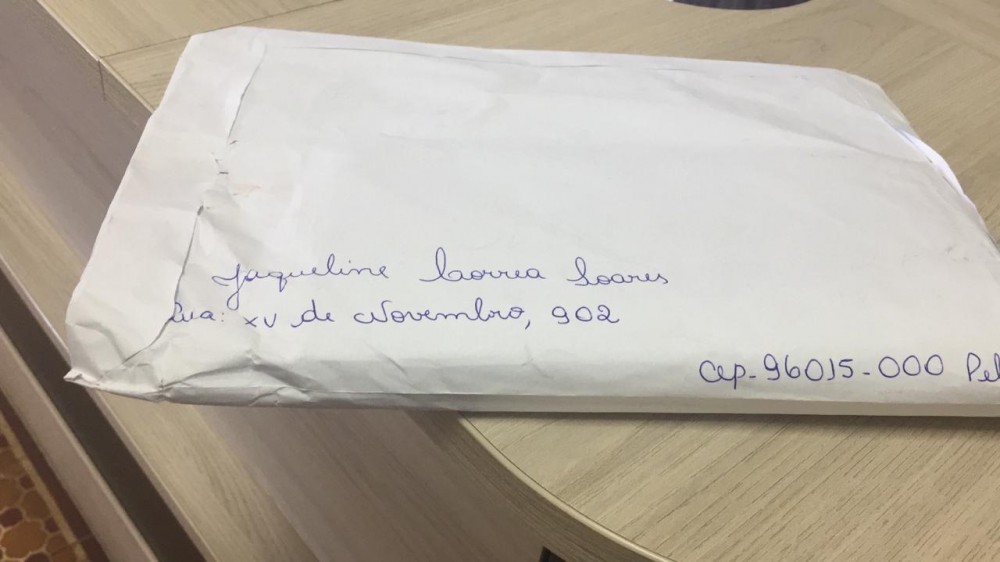 Jaqueline Correa Soares
Rua: XV de Novembro, 902
Cep-96015-000 Pel